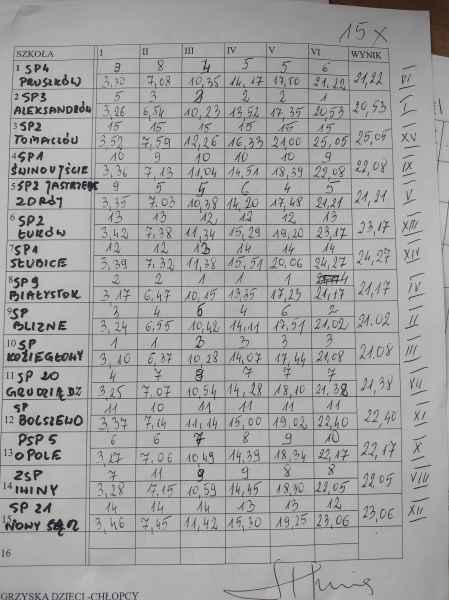 15 X
SZKOŁA I II III IV V VI WYNIK
1 SP4 3 8 4 5 5 6
PRUSZKÓW 3,30 7,08 10,35 14,17 17,50 21,22 21,22 VI
2 SP3 5 3 2 2 2 1
ALEKSANDRÓW 3,26 6,54 10,23 13,52 17,35 20,53 20,53 I
3 SP2 15 15 15 15 15 15
TOMASZÓW 3,52 7,59 12,26 16,33 21,00 25,05 25,05 XV
4 SP1 10 9 10 10 10 9
ŚWINOUJŚCIE 3,36 7,13 11,04 14,51 18,39 22,08 22,08 IX
5 SP2 JASTRZĘB 9 5 5 6 4 5
ZDRÓJ 3,35 7,03 10,38 14,20 17,48 21,21 21,21 V
6 SP2 13 13 12 12 12 13
ŁUKÓW 3,42 7,38 11,34 15,29 19,20 23,17 23,17 XIII
7 SP1 12 12 13 14 14 14
SŁUBICE 3,39 7,32 11,38 15,51 20,06 24,27 24,27 XIV
8 SP9 2 2 1 1 1 4
BIAŁYSTOK 3,17 6,47 10,15 13,35 17,23 21,17 21,17 IV
9 SP 3 4 6 4 6 2
BLIZNE 3,24 6,55 10,42 14,11 17,51 21,02 21.02 II
10 SP 1 1 3 3 3 3
KOZIEGŁOWY 3,10 6,37 10,28 14,07 17,44 21,08 21.08 III
11 SP 20 4 7 7 7 7
GRUDZIĄDZ 3,25 7,07 10,54 14,28 18,10 21,38 21,38 VII
SP 11 10 11 11 11 11
12 BOLSZEWO 3,37 7,14 11,14 15,00 19,02 22,40 22,40 XI
PSP 5 6 6 7 8 9 10
13 OPOLE 3,27 7,06 10,49 14,39 18,34 22,17 22,17 X
ZSP 7 11 9 9 8 8
14 3,28 7,15 10,59 14,45 18,30 22,05 22.05 VIII
SP 21 14 14 14 13 13 12
15 NOWY SĄCZ 3,46 7,45 11,42 15,30 19,25 23,06 23,06 XII
16
GRZYSKA DZIECI -CHŁOPCY